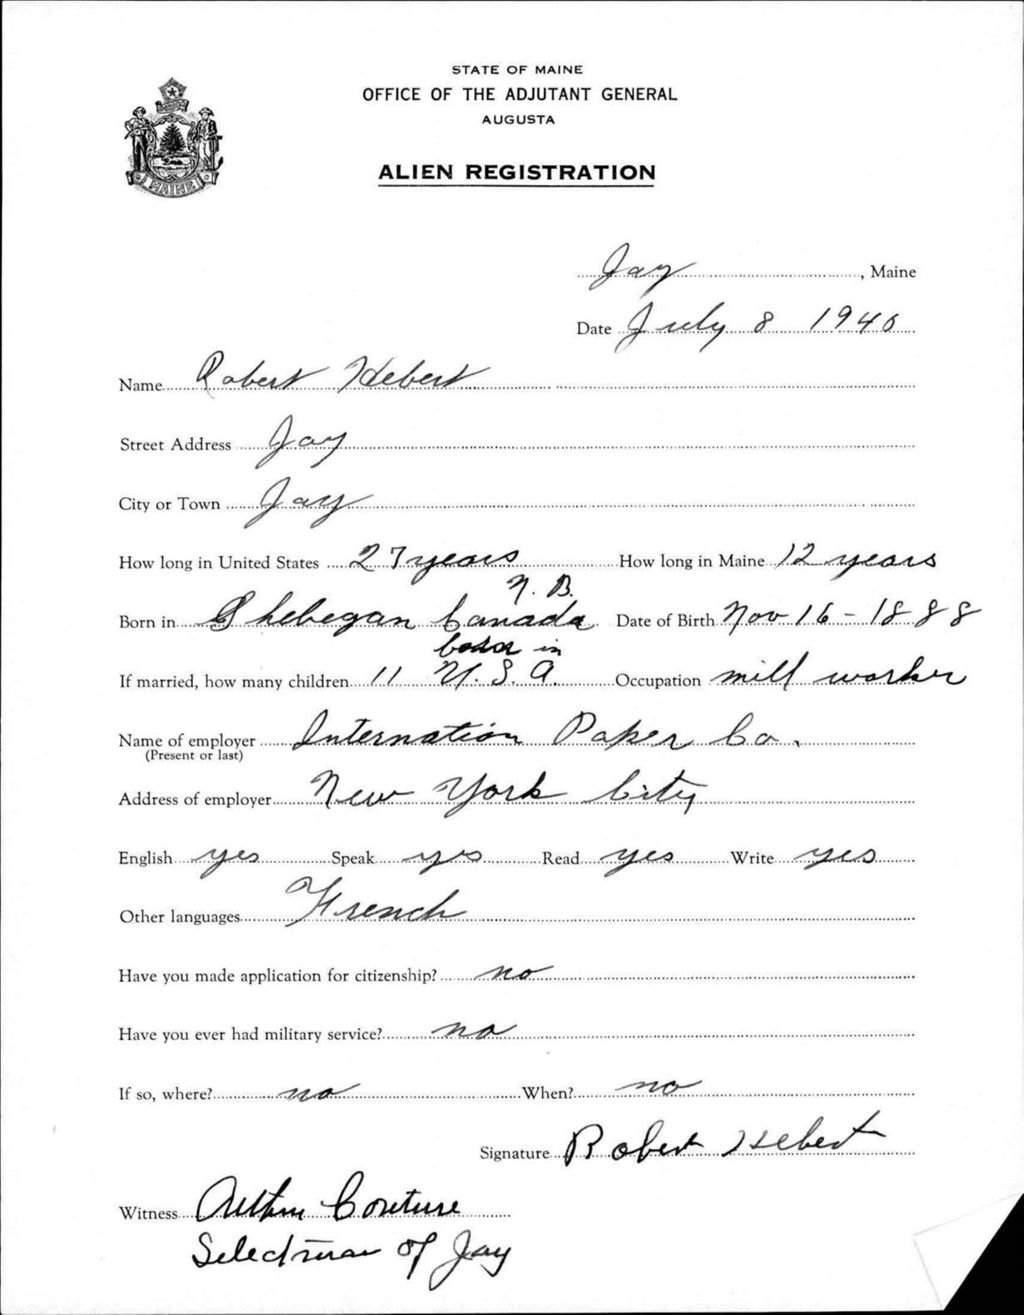 STATE OF MAINE
OFFICE OF THE ADJUTANT GENERAL
AUGUSTA
ALIEN REGISTRATION
MAINE
Jay, Maine
Date July 8 1940
Name Robert Hebert
Street Address Jay
City or Town Jay
How long in United States 27 years How long in Maine 12 years
N. B.
Born in Shebegan Canada Date of Birth Nov 16 - 1888
born in
If married, how many children 11 U. S. A. Occupation mill worker
Name of employer Internation Paper Co.
(Present or last)
Address of employer New York City
English yes Speak yes Read yes Write yes
Other languages French
Have you made application for citizenship? no
Have you ever had military service? no
If so, where? no When? no
Signature Robert Hebert
Witness Arthur Couture
Selectman of Jay